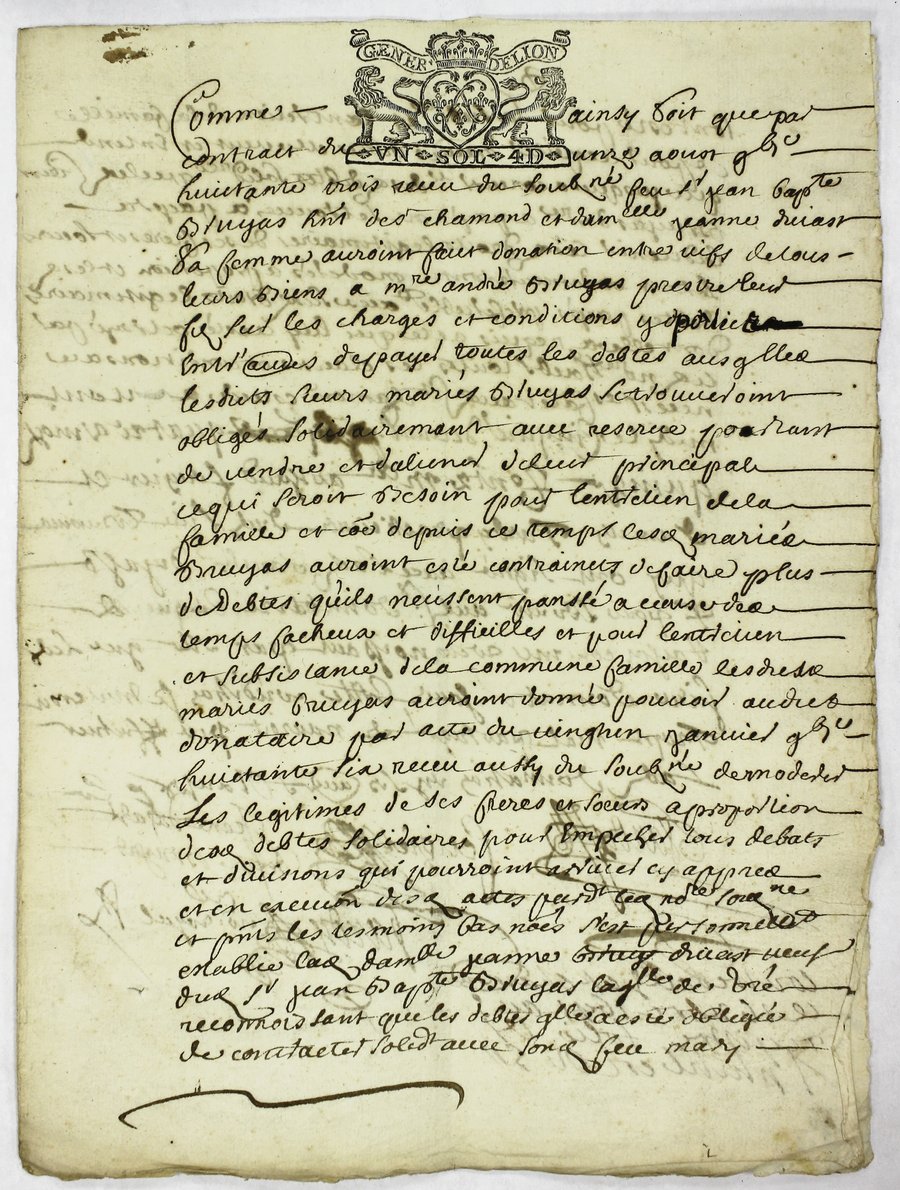 GENER DELION
VN SOL 4D
Comme ainsy soit que par
contract du unze aoust gbc
huictante trois receu du soubné feu sr jean bapte
Bruyas hnt des chamond et damelle jeanne divast
sa femme auroint faict donation entre vifs de tous
leurs biens a mre andré Bruyas prestre leur
fis sur les charges et conditions y
Entr'autres de payer toutes les debtes ausqlles
lesdits sieurs mariés Bruyas se trouveroint
obligés solidairemant avec reserve pourtant
de vendre et daliener de leur principal
ce qui seroit besoin pour lentretien de la
famille et coe depuis ce temps lesd mariés
Bruyas auroint esté contraincts de faire plus
de debtes quils neussent panssé a cause des
temps facheux et difficilles et pour lentretien
et subsistance de la commune famille lesdicts
mariés Bruyas auroint donné pouvoir audict
donataire par acte du vingt janvier gbc
huictante six receu aussy du soubné de moderer
Les legitimes de ses freres et soeurs a proportion
desd debtes solidaires pour Empecher tous debats
et divisions qui pourroint arriver cy appres
et en execuon desd actes pardt le nore soubné
et pnts les tesmoins bas noés s'est personnellet
establie lad damlle jeanne divast veufve
dud sr jean Bapte Bruyas laqlle de gré
reconnoissant que les debtes qlle a esté obligée
de contracter solidt avec sond feu mary